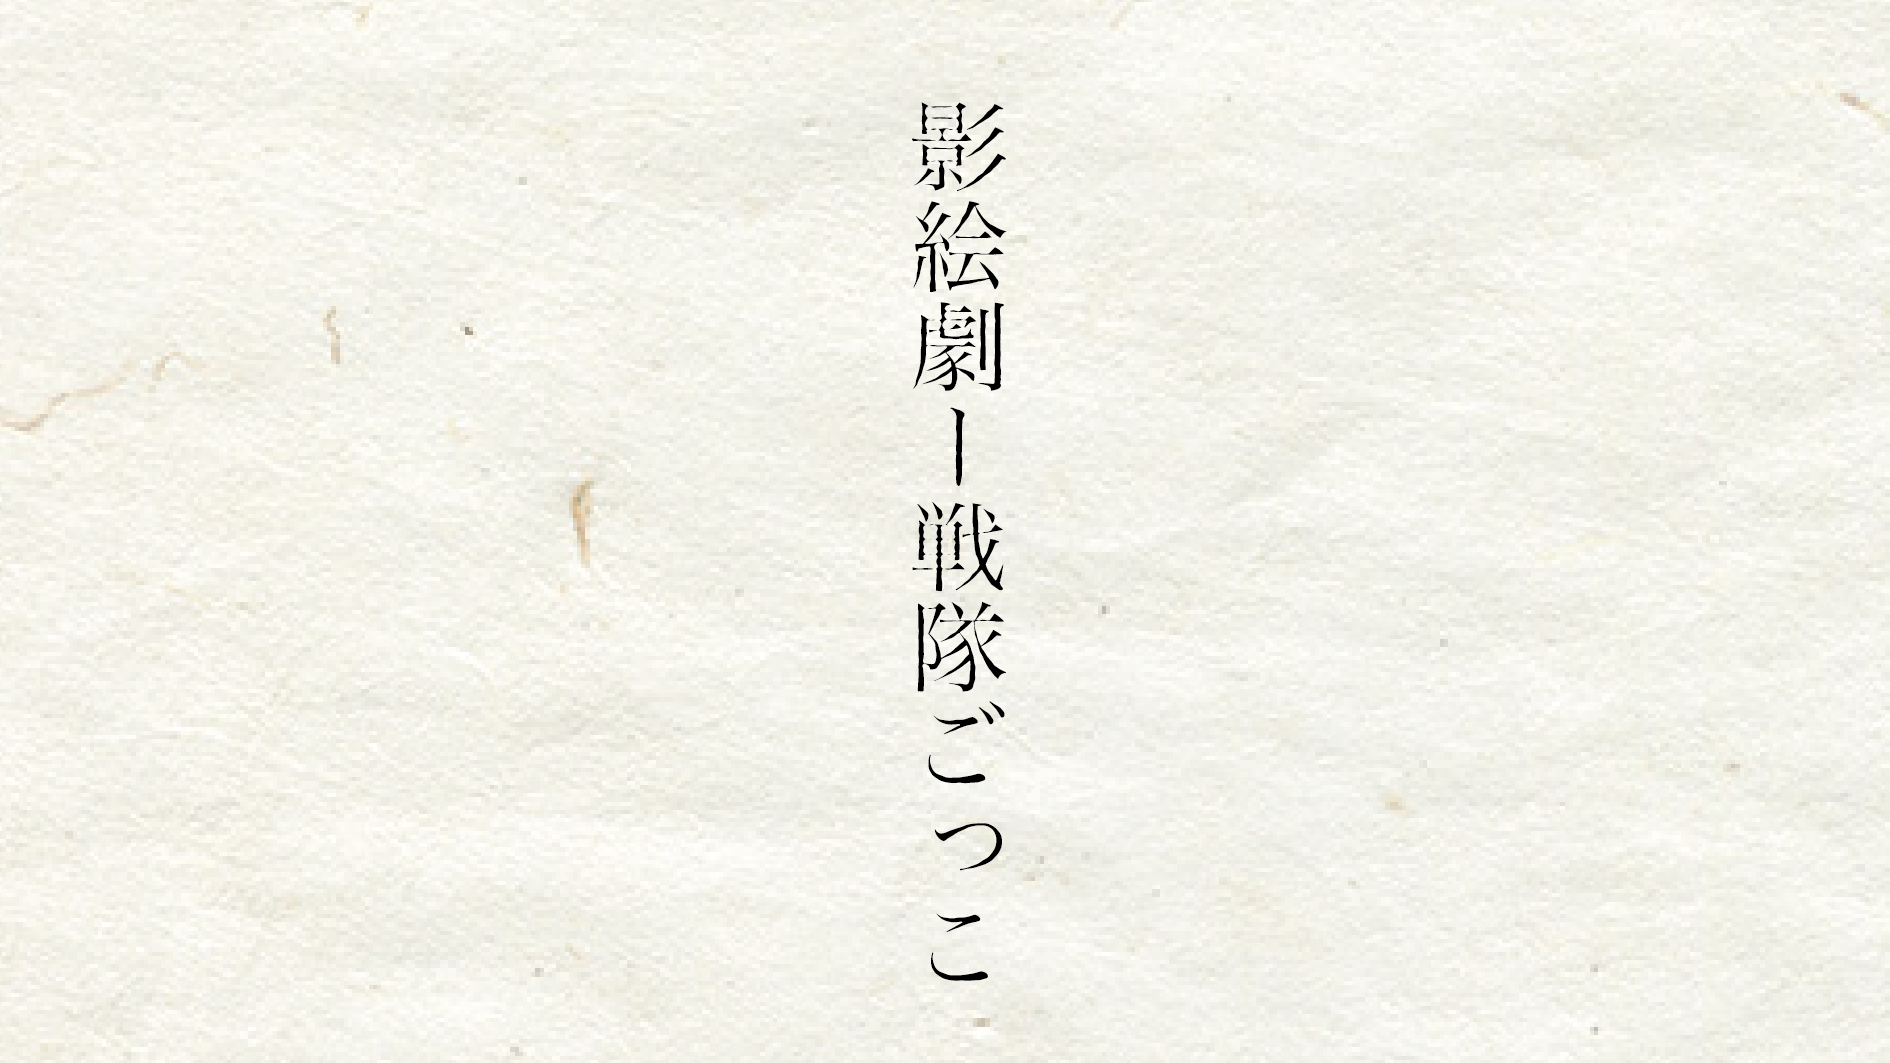 影絵劇ー戦隊ごっこ